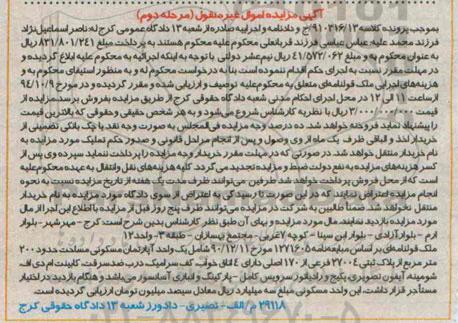 آگهی مزایده اموال غیر منقول (مرحله دوم)
بموجب پرونده کلاسه ۹۱۰۳۱۶/۱۳ ج و دادنامه و اجراییه صادره از شعبه ۱۳ دادگاه عمومی کرج له: ناصر اسماعیل نژاد
فرزند محمد علیه: عباس عباسی فرزند قربانعلی محکوم علیه محکوم هستند به پرداخت مبلغ ۸۳۱/۸۰۱/۲۴۱ ریال
به عنوان محکوم به و مبلغ ۴۱/۵۷۲/۰۶۲ ریال نیم عشر دولتی با توجه به اینکه اجرائیه به محکوم علیه ابلاغ گردیده و
در مهلت مقرر نسبت به اجرای حکم اقدام ننموده است بنا به درخواست محکوم له و به منظور استیفای محکوم به و
هزینه های اجرایی ملک قولنامه ای متعلق به محکوم علیه توصیف و ارزیابی شده و مقرر گردیده و در مورخ ۹۴/۱۰/۹
از ساعت ۱۱ الی ۱۲ در محل اجرای احکام مدنی شعبه دادگاه حقوقی کرج از طریق مزایده بفروش برسد. مزایده از
قیمت ۳/۰۰۰/۰۰۰/۰۰۰ ریال با نظریه کارشناس شروع می شود و به هر شخص حقیقی و حقوقی که بالاترین قیمت
را پیشنهاد نماید فروخته خواهد شد. ده درصد وجه مزایده فی المجلس به صورت وجه نقد یا چک بانکی تضمینی از
خریدار اخذ و الباقی ظرف یک ماه از وی وصول و پس از انجام مراحل قانونی و صدور حکم تملیک مورد مزایده به
نام خریدار منتقل خواهد شد. در صورتی که در مهلت مقرر خریدار وجه مزایده را پرداخت ننماید سپرده وی پس از
کسر هزینه های مزایده به نفع دولت ضبط و مزایده تجدید می گردد. کلیه هزینه های نقل و انتقال به عهده محکوم علیه
است که از محل فروش پرداخت خواهد شد. طرفین می توانند ظرف مدت یک هفته از تاریخ مزایده نسبت به نحوه
انجام مزایده اعتراض نمایند که در این صورت تا رسیدگی به اعتراض از سوی دادگاه مورد مزایده به نام خریدار
منتقل نخواهد شد. ضمنا طالبین به شرکت در مزایده می توانند ظرف پنج روز قبل از مزایده با اطلاع این اجرا از مال
مورد مزایده بازدید نمایند. مال مورد مزایده و بهای آن طبق نظر کارشناس بدین شرح است: کرج - مهرشهر - بلوار
ارم - بلوار آزادی - بلوار ابن سینا - کوچه ۷ غربی - مجتمع نیساران - طبقه ۳ - واحد ۱۲
ملک قولنامه ای بر اساس مبایعه نامه ۱۲۷۱۶۰۵ مورخ ۹۰/۱۲/۱۱ شامل یک واحد آپارتمان مسکونی مساحت حدود ۲۰۰
متر مربع از پلاک ثبتی ۲۷۰۰۴ فرعی از ۱۷۰ اصلی دارای ۴ اتاق خواب کف سرامیک درب ضد سرقت کابینت ام دی اف
شومینه آیفون تصویری پکیج و رادیاتور سرویس کامل - پارکینگ و انباری آسانسور می باشد و هنگام بازدید در اختیار
مستأجر قرار داشت، این واحد مسکونی مبلغ سه میلیارد ریال معادل سیصد میلیون تومان ارزیابی گردیده است.
۲۹۱۱۸ م الف - نصیری - دادورز شعبه ۱۳ دادگاه حقوقی کرج